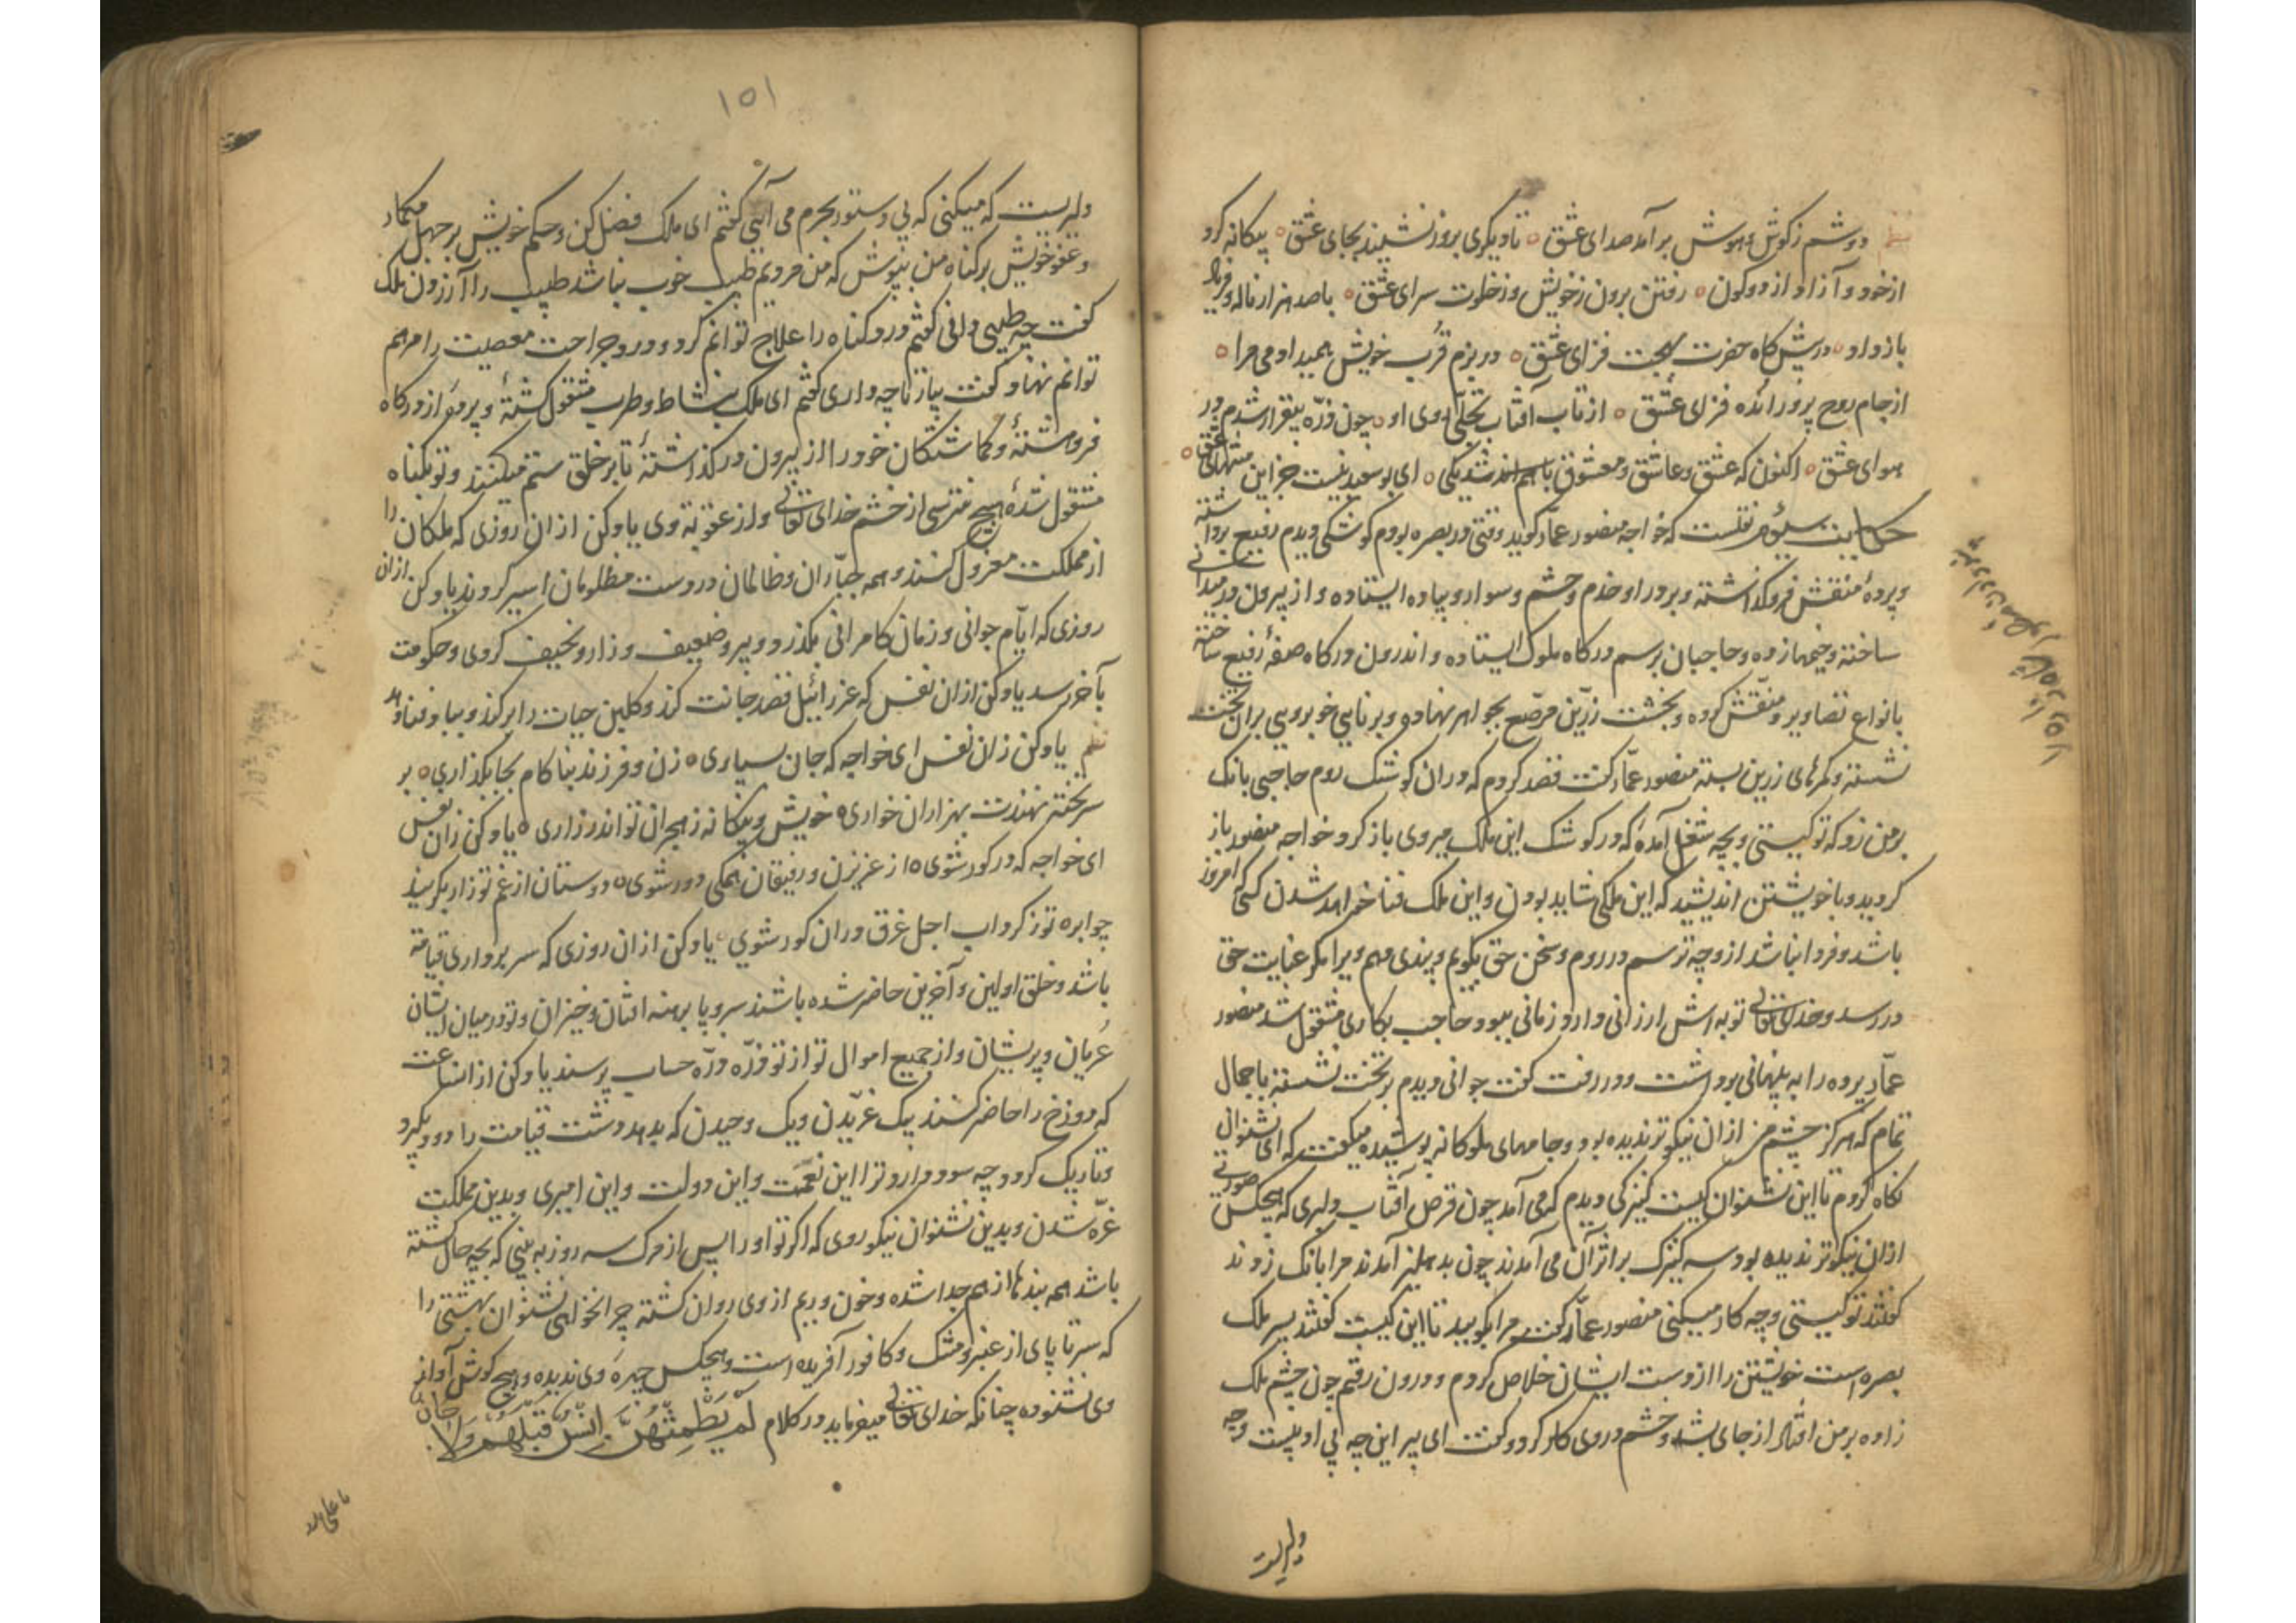 نظم دوشم ز گوش هوش برآمد صدای عشق ه تا دیکری بروز نشیند بجای عشق ه بیکانه کرد
از خود و آزاد از دو کون ه رفتن برون ز خویش و ز خلوت سرای عشق ه با صد هزار ناله و فریاد
باز داد ه در پیش کاه حضرت بهجت فزای عشق ه در بزم قرب خویش همیدا و می مرا ه
از جام روح پرور انده فزای عشق ه از تاب آفتاب تجلّی روی او ه چون ذرّه بیقرار شدم در
هوای عشق ه اکنون که عشق و عاشق و معشوق باهم شد یکی ه ای بو سعید نیست جز این منتهای عشق ه
حکایت سیوم نقلست که خواجه منصور عمّار کوید وقتی در بصره بودم کوشکی دیدم رفیع برداشته
و پردهٔ منقش فروکذاشته و بر در او خدم و حشم و سوار و پیاده ایستاده و از بیرون در میدانی
ساخته و خیمها زده و حاجبان برسم درکاه ملوک ایستاده و اندرون درکاه صفهٔ رفیع ساخته
بانواع تصاویر و منقّش کرده و تخت زرّین مرصّع بجواهر نهاده و برنایی خوبرویی بران تخت
نشسته و کمرهای زرین بسته منصور عمّار کفت قصد کردم که دران کوشک روم حاجبی بانک
بر من زد که تو کیستی و بچه شغل آمدهٔ که در کوشک این ملک میروی باز کرد خواجه منصور باز
کردید و با خویشتن اندیشید که این ملکی شاید بودن و این ملک فنا خواهد شدن کسی امروز
باشد و فردا نباشد از وچه ترسم در روم و سخن حق بکویم و پندی دهم ویرا مکر عنایت حق
در رسد و خدای تعالی توبه اش ارزانی دارد زمانی ببود حاجب بکاری مشغول شد منصور
عمّار پرده را به پنهانی برداشت و در رفت کفت جوانی دیدم بر تخت نشسته با جمال
تمام که هرکز چشم من ازان نیکوتر ندیده بود و جامهای ملوکانه پوشیده میکفت که ای نشنوان
نکاه کردم تا این نشنوان کیست کنیزکی دیدم که می آمد چون قرص آفتاب و لبری که هیچکس صورتی
ازان نیکوتر ندیده بود و سه کنیزک بر اثر آن می آمدند چون بدهلیز آمدند مرا بانک زدند
کفتند تو کیستی و چه کار میکنی منصور عمّار کفت مرا بکویید تا این کیست کفتند پسر ملک
بصره است خویشتن را از دست ایشان خلاص کردم و درون رفتم چون چشم ملک
زاده بر من افتاد از جای بشد و خشم در وی کار کرد و کفت ای پیر این چه بی ادبیست و چه
دلیریست
۱۵۱
دلیریست که میکنی که بی دستور بحرم می آیی کفتم ای ملک فضل کن و حکم خویش بر جهل مکمار
و عفو خویش بر کناه من بپوش که من مردیم طبیب خوب نباشد طبیب را آزردن ملک
کفت چه طبیبی دانی کفتم درد کناه را علاج توانم کرد و درد جراحت معصیت را مرهم
توانم نهاد کفت بیار تا چه داری کفتم ای ملک بنشاط و طرب مشغول کشتهٔ و پرده از درکاه
فروهشتهٔ و کماشتکان خود را از بیرون در کذاشتهٔ تا بر خلق ستم میکنند و تو بکناه
مشغول شدهٔ هیچ نترسی از خشم خدای تعالی و از عقوبة وی یاد کن ازان روزی که ملکان را
از مملکت معزول کنند و همه جبّاران و ظالمان در دست مظلومان اسیر کردند یاد کن ازان
روزی که ایّام جوانی و زمان کامرانی بکذرد و پیر و ضعیف و زار و نحیف کردی و حکومت
بآخر رسد یاد کن ازان نفس که عزرائیل قصد جانت کند و کلبن حیات را برکند و بباد فنا دهد
نظم یاد کن زان نفس ای خواجه که جان بسپاری ه زن و فرزند بناکام بجا بکذاری ه بر
سر تخته نهندت بهزاران خواری ه خویش و بیکانه ز هجران تو اندر زاری ه یاد کن زان نفس
ای خواجه که در کور شوی ه از عزیزان و رفیقان همکی دور شوی ه دوستان از غم تو زار بکریند
چو ابره تو ز کرداب اجل غرق دران کور شوی ه یاد کن ازان روزی که سر برداری قیامة
باشد و خلق اولین و آخرین حاضر شده باشند سر و پا برهنه افتان و خیزان و تو در میان ایشان
عریان و پریشان و از جمیع اموال تو از تو ذرّه ذرّه حساب پرسند یاد کن ازان ساعت
که دوزخ را حاضر کنند بیک غرّیدن و یک دمیدن که بدهد دشت قیامت را دود بکیرد
و تاریک کردد چه سود دارد ترا این نعمت و این دولت و این امیری و بدین مملکت
غرّه شدن و بدین نشنوان نیکوروی که اکر تو او را پس از مرک سه روز به بینی که بچه حال کشته
باشد همه بندها از هم جدا شده و خون و ریم از وی روان کشته چرا نخواهی نشنوان بهشتی را
که سر تا پای از عنبر و مشک و کافور آفریده است و هیچکس چهرهٔ وی ندیده و هیچ کوش آواز
وی نشنوده چنانکه خدای تعالی میفرماید در کلام لَمْ يَطْمِثْهُنَّ اِنْسٌ قَبْلَهُمْ وَلَا جَانٌّ